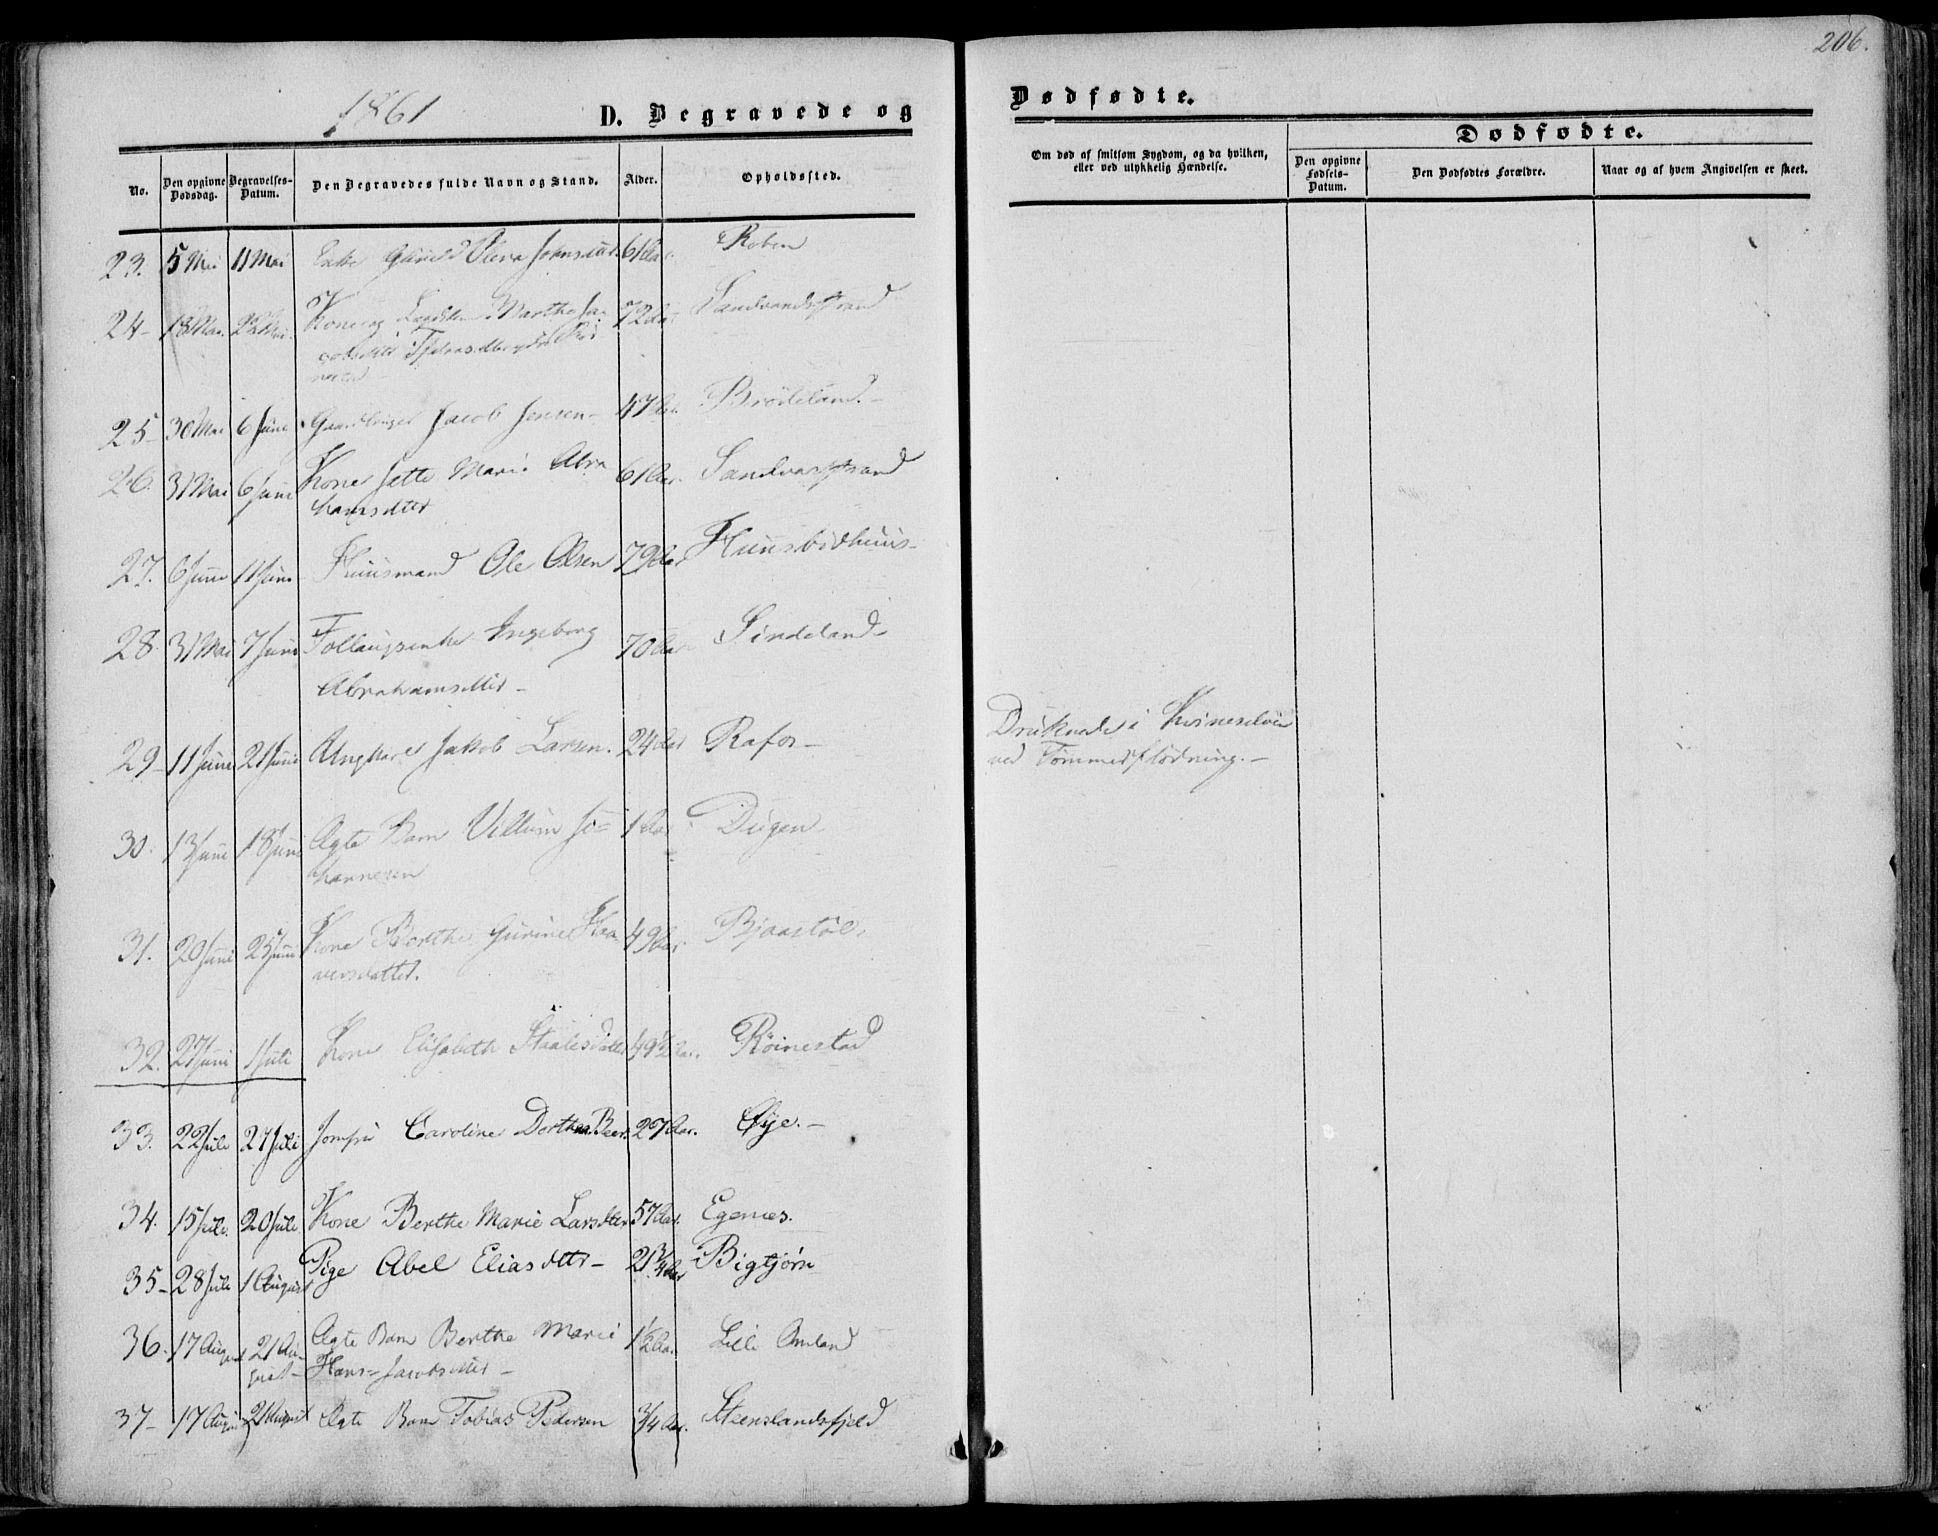 206.
1861
D. Begravede og
Dødfødte.
No.
Den opgivne Dødsdag.
Begravelses-Datum.
Den Begravedes fulde Navn og Stand.
Alder.
Opholdssted.
Om død af smitsom Sygdom, og da hvilken, eller ved ulykkelig Hændelse.
Dødfødte.
Den opgivne Fødsels-Datum.
Den Dødfødtes Forældre.
Naar og af hvem Angivelsen er skeet.
23. 5 Mai 11 Mai Enke Olena Johnsdatt. 61 Aar.
24 - 18 Mai. Kone og Martha 72 Aar Sandvandsstrand
25 - 30 Mai 6 Juni Gaardbruger Jacob Jensen - 47 Aar. Brødeland. -
26. 31 Mai 6 Juni Kone Jette Marie Abra 61 Aar. Sandvandstrand
hamsdtter
27. 6 Juni 11 Juni Huusmand Ole Olsen 79 Aar Huusbidhuus -
28. 31 Mai 7 Juni Follaugsenke Ingeborg 70 Aar Sindeland -
Abrahamsdtter -
29 - 11 Juni 21 Juni Ungkarl Jakob Larsen. 24 Aar Rafos -
Druknede i Kvineselven
ved Tømmerflødning. -
30. 13 Juni 18 Juni Ægte Barn Villum Jo= 1 Aar Dugen
hannesen
31. 20 Juni 25 Juni Kone Berthe Gurine Haa 49 Aar. Bjaastøl.
versdatter.
32. 27 Juni 1 Juli Kone Elisabeth Staalesdatter 49½ Aar. Røinestad
33. 22 Juli 27 Juli Jomfru Caroline Dorthea Beer. 27 Aar. Øye. -
34. 15 Juli. 20 Juli Kone Berthe Marie Larsdtter 57 Aar. Egenes.
35 - 28 Juli 1 August Pige Abel Eliasdttr - 21¾ Aar Bigtjørn
36. 17 August 21 Au- Ægte Barn Berthe Marie 1½ Aar. Lille Omland
gust - Hans=Jacobsdtter -
37 - 17 August 21 August Ægte Barn Tobias Pedersen ¾ Aar. Steenslandsfjeld